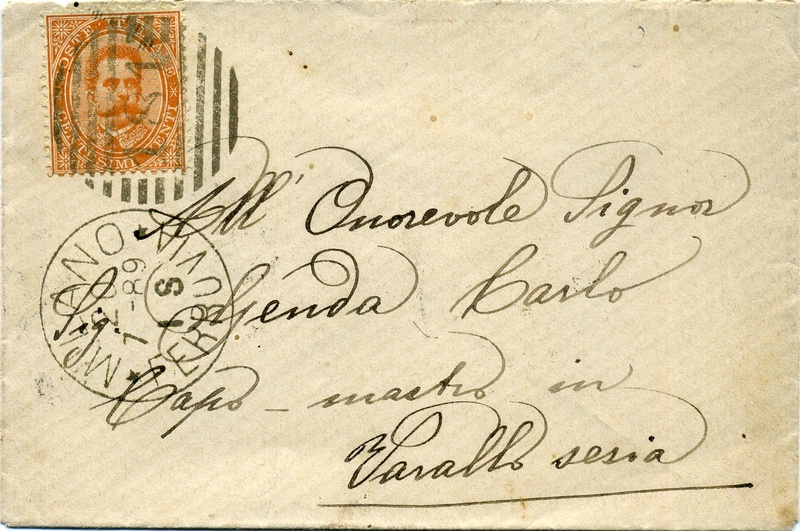 POSTE ITALIANE
CENTESIMI VENTI
MILANO
FERROVIA
7 - 89
1 S
All' Onorevole Signor
Sig. Genda Carlo
Capo-mastro in
Varallo sesia